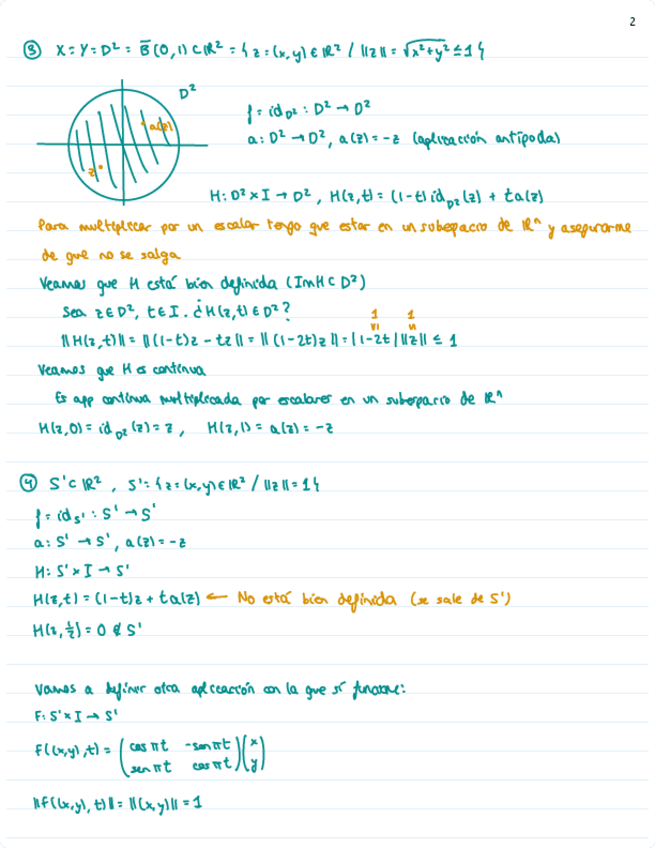 2
③ X=Y=D² = B̅(0,1) ⊂ ℝ² = {z=(x,y) ∈ ℝ² / ||z|| = √x²+y² ≤ 1}
D²
a(z)
z
f = id_D² : D² → D²
a: D² → D², a(z) = -z (aplicación antipoda)
H: D² × I → D², H(z,t) = (1-t) id_D² (z) + t a(z)
Para multiplicar por un escalar tengo que estar en un subespacio de ℝⁿ y asegurarme
de que no se salga
Veamos que H está bien definida (ImH ⊂ D²)
Sea z ∈ D², t ∈ I. ¿H(z,t) ∈ D²?
1 1
||H(z,t)|| = ||(1-t)z - tz|| = ||(1-2t)z|| = |1-2t| ||z|| ≤ 1
Veamos que H es continua
Es app continua multiplicada por escalares en un subespacio de ℝⁿ
H(z,0) = id_D² (z) = z, H(z,1) = a(z) = -z
④ S' ⊂ ℝ², S' = {z=(x,y) ∈ ℝ² / ||z|| = 1}
f = id_S' : S' → S'
a: S' → S', a(z) = -z
H: S' × I → S'
H(z,t) = (1-t)z + t a(z) ← No está bien definida (se sale de S')
H(z,½) = 0 ∉ S'
Vamos a definir otra aplicación con la que sí funcione:
F: S' × I → S'
F((x,y),t) = (cos πt -sen πt) (x)
(sen πt cos πt) (y)
||F((x,y),t)|| = ||(x,y)|| = 1